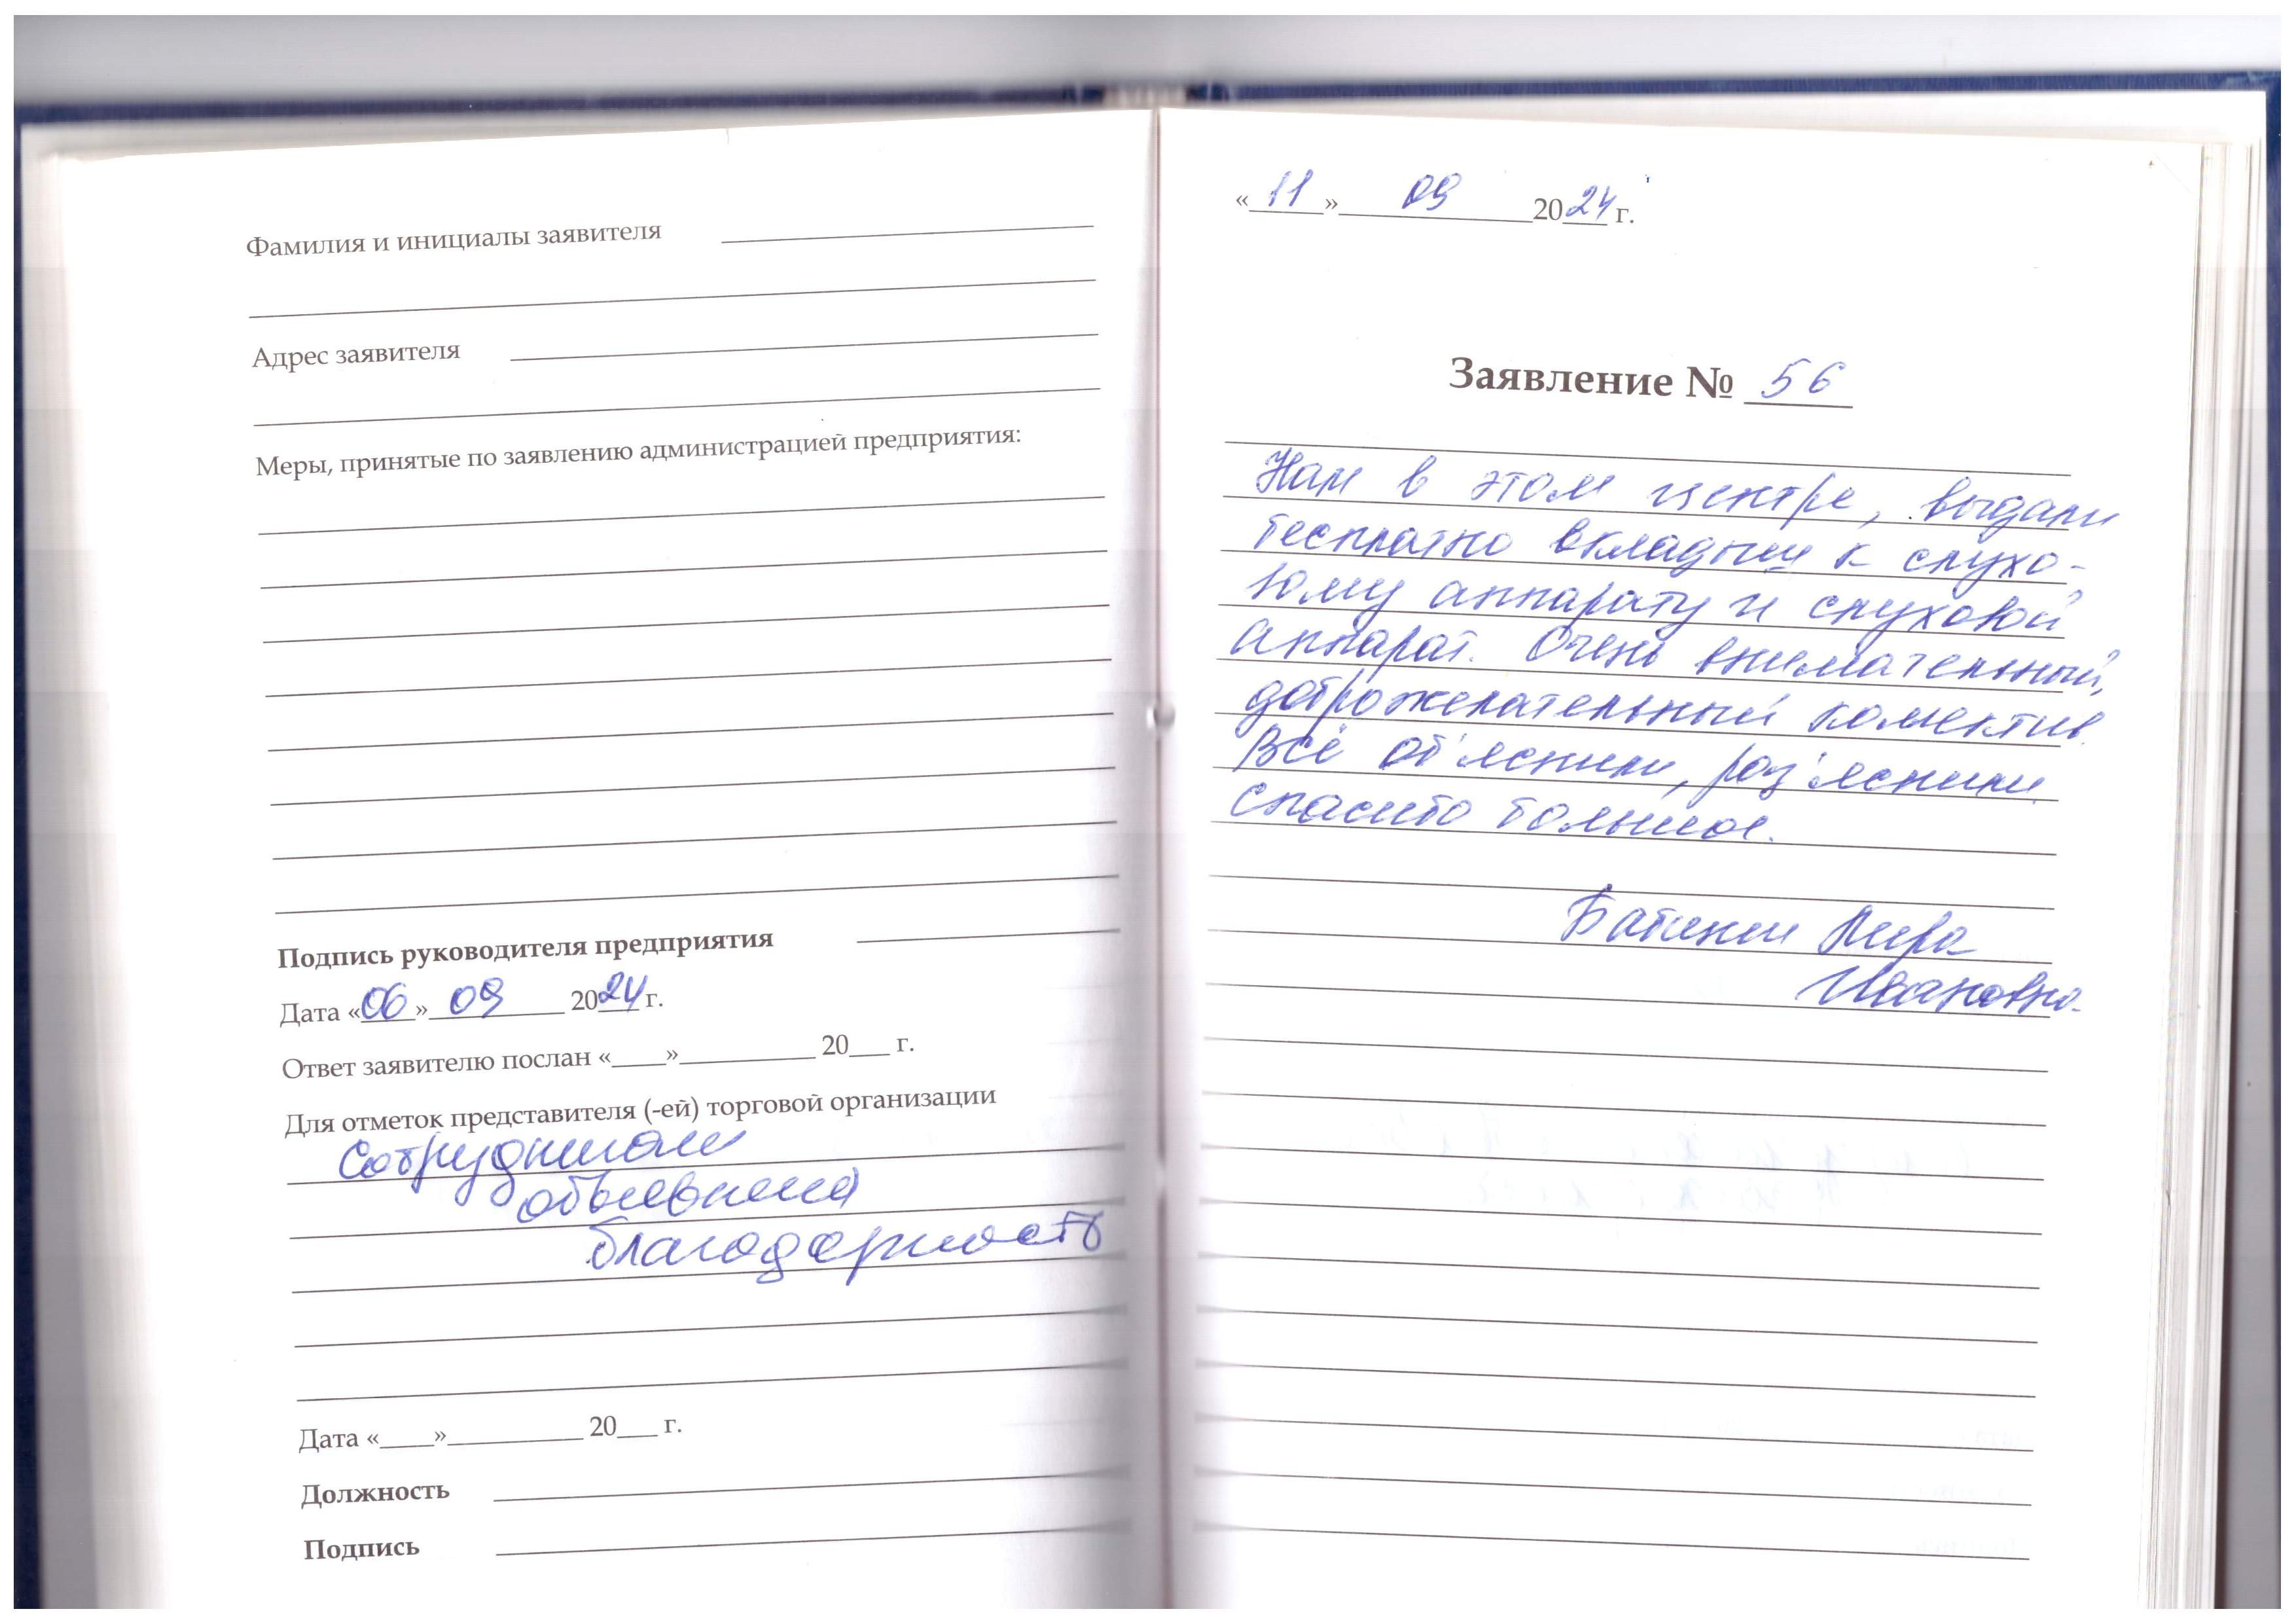 Фамилия и инициалы заявителя
Адрес заявителя
Меры, принятые по заявлению администрацией предприятия:
Подпись руководителя предприятия
Дата «06» 09 2024 г.
Ответ заявителю послан «____»__________ 20___ г.
Для отметок представителя (-ей) торговой организации
Сотрудникам
объявлена
благодарность
Дата «____»__________ 20___ г.
Должность
Подпись
«11» 09 2024 г.
Заявление № 56
Нам в этом центре, выдали
бесплатно вкладыш к слухо-
вому аппарату и слуховой
аппарат. Очень внимательный,
доброжелательный коллектив.
Всё об'яснили, раз'яснили.
спасибо большое.
Лира
Ивановна.